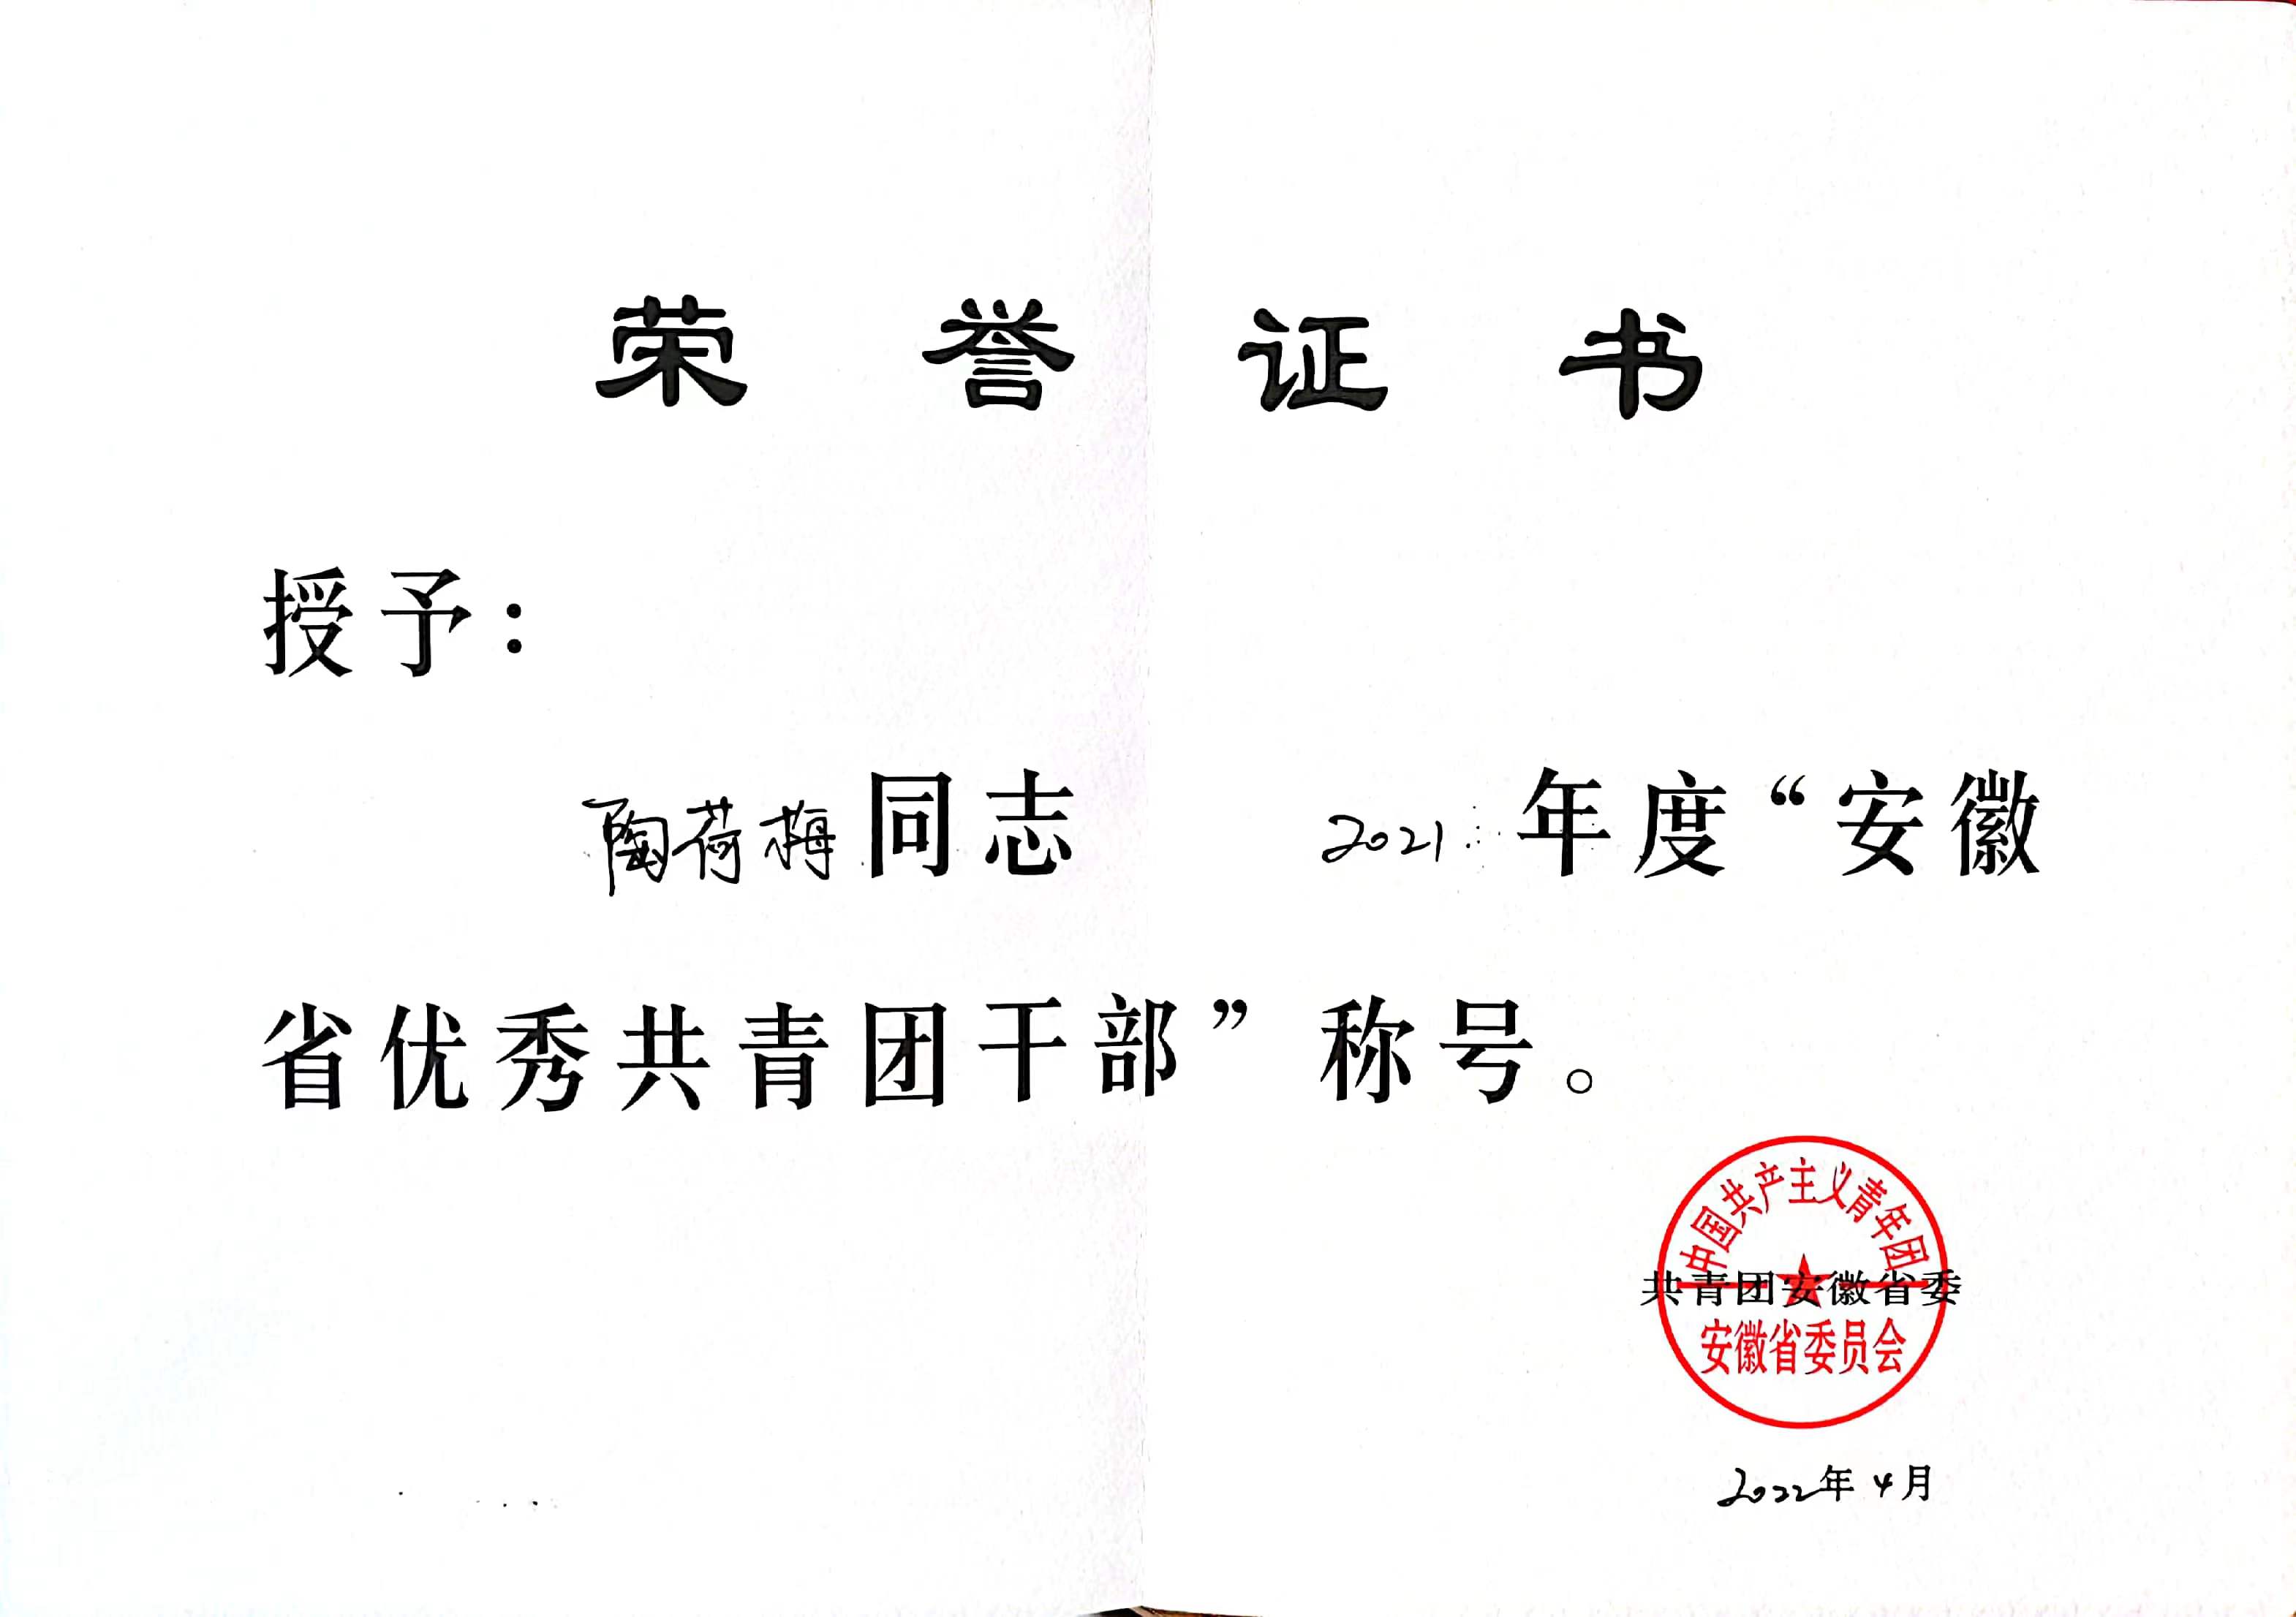 荣誉证书
授予：
陶荷梅同志 2021 年度“安徽
省优秀共青团干部”称号。
中国共产主义青年团
共青团安徽省委
安徽省委员会
2022年4月